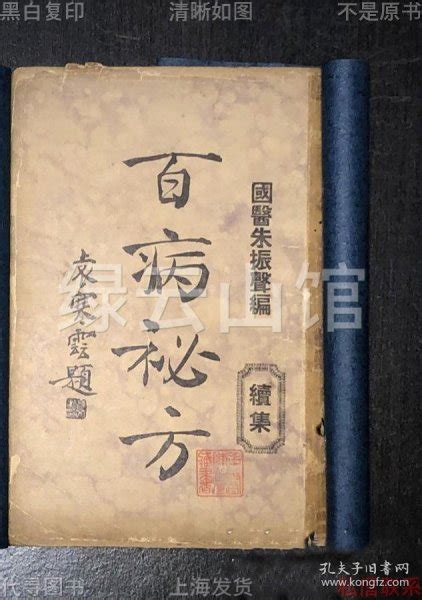 黑白复印 清晰如图 不是原书
國醫朱振聲編
續集
百病秘方
袁寒雲題
绿云山馆
代寻图书 上海发货 私信联系
孔夫子旧书网